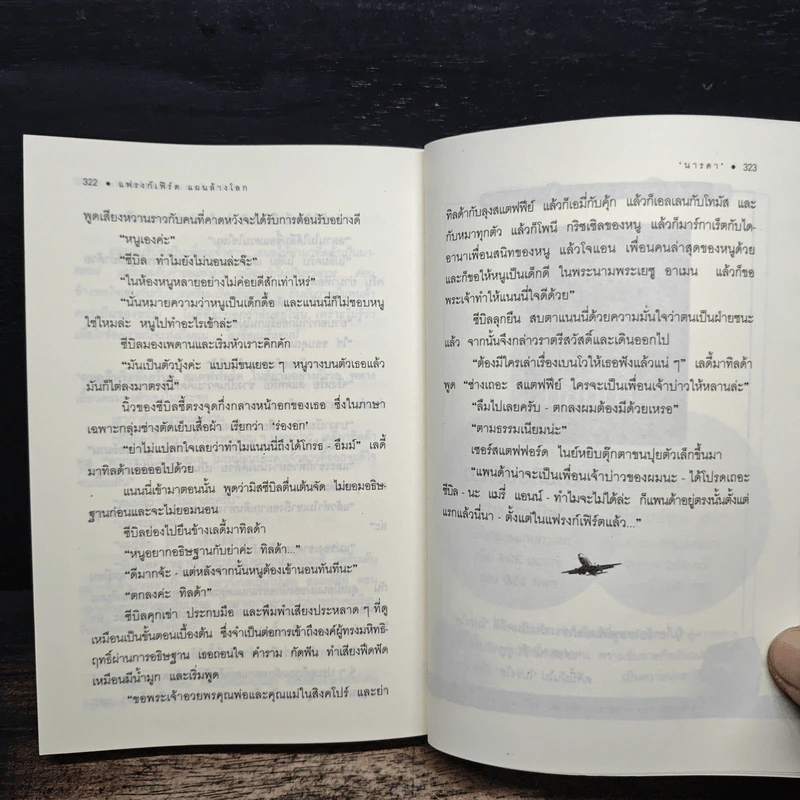 322 • แฟรงก์เฟิร์ต แผนล้างโลก
พูดเสียงหวานราวกับคนที่คาดหวังจะได้รับการต้อนรับอย่างดี
“หนูเองค่ะ”
“ซีบิล ทำไมยังไม่นอนล่ะจ๊ะ”
“ในห้องหนูหลายอย่างไม่ค่อยดีสักเท่าไหร่”
“นั่นหมายความว่าหนูเป็นเด็กดื้อ และแนนนี่ก็ไม่ชอบหนู
ใช่ไหมล่ะ หนูไปทำอะไรเข้าล่ะ”
ซีบิลมองเพดานและเริ่มหัวเราะคิกคัก
“มันเป็นตัวบุ้งค่ะ แบบมีขนเยอะ ๆ หนูวางบนตัวเธอแล้ว
มันก็ไต่ลงมาตรงนี้”
นิ้วของซีบิลชี้ตรงจุดกึ่งกลางหน้าอกของเธอ ซึ่งในภาษา
เฉพาะกลุ่มช่างตัดเย็บเสื้อผ้า เรียกว่า ‘ร่องอก’
“ย่าไม่แปลกใจเลยว่าทำไมแนนนี่ถึงได้โกรธ - อืมม์” เลดี้
มาทิลด้าเออออไปด้วย
แนนนี่เข้ามาตอนนั้น พูดว่ามิสซีบิลตื่นเต้นจัด ไม่ยอมอธิษ-
ฐานก่อนและจะไม่ยอมนอน
ซีบิลย่องไปยืนข้างเลดี้มาทิลด้า
“หนูอยากอธิษฐานกับย่าค่ะ ทิลด้า...”
“ดีมากจ้ะ - แต่หลังจากนั้นหนูต้องเข้านอนทันทีนะ”
“ตกลงค่ะ ทิลด้า”
ซีบิลคุกเข่า ประกบมือ และพึมพำเสียงประหลาด ๆ ที่ดู
เหมือนเป็นขั้นตอนเบื้องต้น ซึ่งจำเป็นต่อการเข้าถึงองค์ผู้ทรงมหิทธิ-
ฤทธิ์ผ่านการอธิษฐาน เธอถอนใจ คำราม กัดฟัน ทำเสียงฟืดฟัด
เหมือนมีน้ำมูก และเริ่มพูด
“ขอพระเจ้าอวยพรคุณพ่อและคุณแม่ในสิงคโปร์ และย่า
‘นารดา’ • 323
ทิลด้ากับลุงสแตฟฟีย์ แล้วก็เอมี่กับคุ้ก แล้วก็เอลเลนกับโทมัส และ
กับหมาทุกตัว แล้วก็โพนี กริซเซิลของหนู แล้วก็มาร์กาเร็ตกับได-
อานาเพื่อนสนิทของหนู แล้วโจแอน เพื่อนคนล่าสุดของหนูด้วย
และก็ขอให้หนูเป็นเด็กดี ในพระนามพระเยซู อาเมน แล้วก็ขอ
พระเจ้าทำให้แนนนี่ใจดีด้วย”
ซีบิลลุกยืน สบตาแนนนี่ด้วยความมั่นใจว่าตนเป็นฝ่ายชนะ
แล้ว จากนั้นจึงกล่าวราตรีสวัสดิ์และเดินออกไป
“ต้องมีใครเล่าเรื่องเบนโวให้เธอฟังแล้วแน่ ๆ” เลดี้มาทิลด้า
พูด “ช่างเถอะ สแตฟฟีย์ ใครจะเป็นเพื่อนเจ้าบ่าวให้หลานล่ะ”
“ลืมไปเลยครับ - ตกลงผมต้องมีด้วยเหรอ”
“ตามธรรมเนียมน่ะ”
เซอร์สแตฟฟอร์ด ไนย์หยิบตุ๊กตาขนปุยตัวเล็กขึ้นมา
“แพนด้าน่าจะเป็นเพื่อนเจ้าบ่าวของผมนะ - ได้โปรดเถอะ
ซีบิล - นะ แมรี่ แอนน์ - ทำไมจะไม่ได้ล่ะ ก็แพนด้าอยู่ตรงนั้นตั้งแต่
แรกแล้วนี่นา - ตั้งแต่ในแฟรงก์เฟิร์ตแล้ว...”